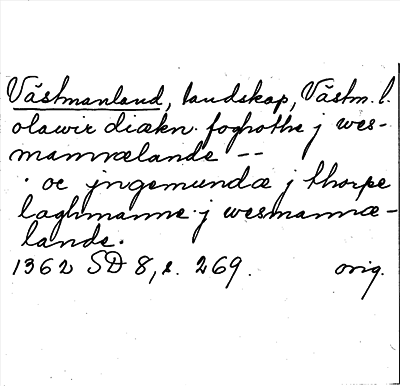 Västmanland, landskap, Västm. l.
olawir diækn foghothe j wes-
mannælande --
· oc jngemundæ j thorpe
laghmanne j wesmannæ-
lande.
1362 SD 8, s. 269. orig.